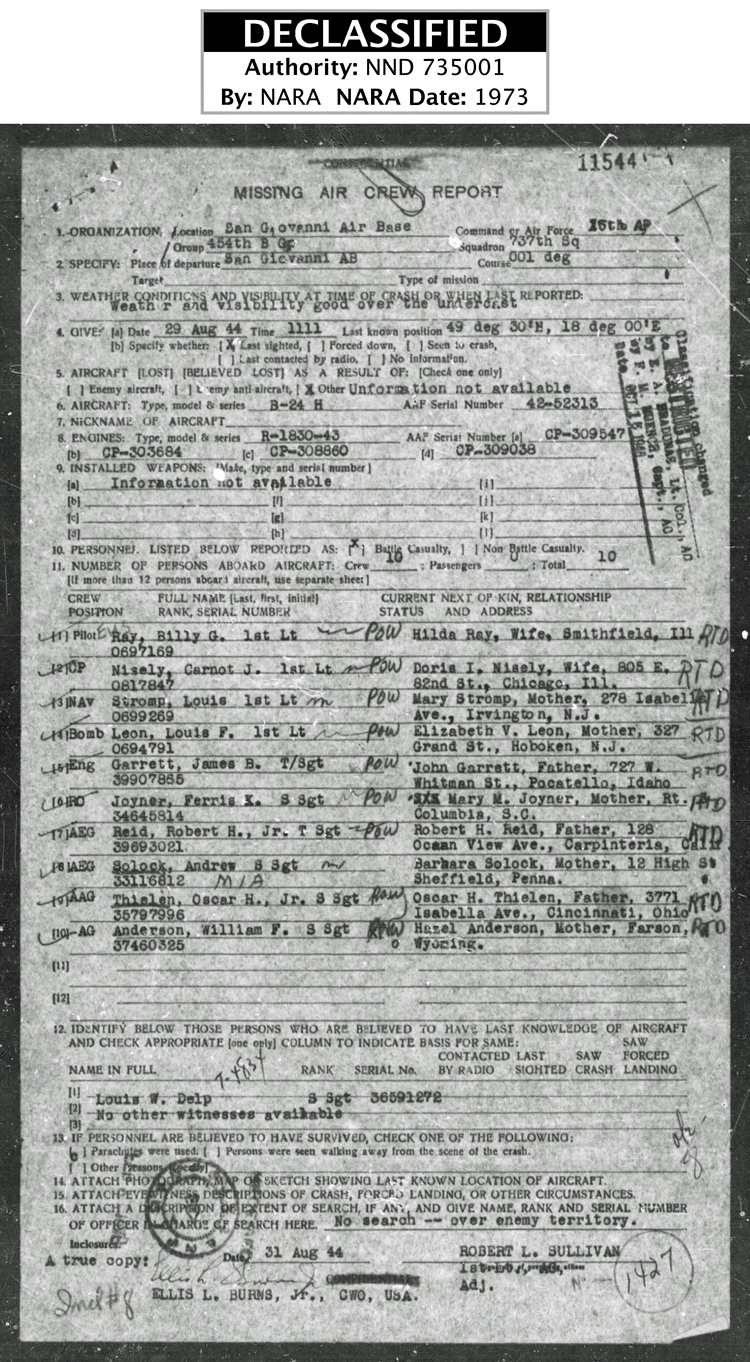 DECLASSIFIED
Authority: NND 735001
By: NARA NARA Date: 1973
CONFIDENTIAL
11544
MISSING AIR CREW REPORT
1. ORGANIZATION: Location San Giovanni Air Base Command or Air Force 15th AF
Group 454th B Gp Squadron 737th Sq
2. SPECIFY: Place of departure San Giovanni AB Course 001 deg
Target Type of mission
3. WEATHER CONDITIONS AND VISIBILITY AT TIME OF CRASH OR WHEN LAST REPORTED:
Weath r and visibility good over the undercast
4. GIVE: [a] Date 29 Aug 44 Time 1111 Last known position 49 deg 30'N, 18 deg 00'E
[b] Specify whether: [X] Last sighted, [ ] Forced down, [ ] Seen to crash,
[ ] Last contacted by radio, [ ] No information.
5. AIRCRAFT [LOST] [BELIEVED LOST] AS A RESULT OF: [Check one only]
[ ] Enemy aircraft, [ ] Enemy anti-aircraft, [X] Other Unformation not available
6. AIRCRAFT: Type, model & series B-24 H AAF Serial Number 42-52313
7. NICKNAME OF AIRCRAFT
8. ENGINES: Type, model & series R-1830-43 AAF Serial Number [a] CP-309547
[b] CP-303684 [c] CP-308860 [d] CP-309038
9. INSTALLED WEAPONS: [Make, type and serial number]
[a] Information not available [i]
[b] [f] [j]
[c] [g] [k]
[d] [h] [l]
Classification changed
to RESTRICTED
by E. A. BRADUNAS, Lt. Col., AC
by F. M. Capt., AC
Date OCT 15 1946
10. PERSONNEL LISTED BELOW REPORTED AS: [X] Battle Casualty, [ ] Non Battle Casualty.
11. NUMBER OF PERSONS ABOARD AIRCRAFT: Crew 10; Passengers 0; Total 10
[If more than 12 persons aboard aircraft, use separate sheet]
CREW FULL NAME [Last, first, initial] CURRENT NEXT OF KIN, RELATIONSHIP
POSITION RANK, SERIAL NUMBER STATUS AND ADDRESS
[1] Pilot Ray, Billy G. 1st Lt POW Hilda Ray, Wife, Smithfield, Ill RTD
0697169
[2] CP Nisely, Carnot J. 1st Lt POW Doris I. Nisely, Wife, 805 E. RTD
0817847 82nd St., Chicago, Ill.
[3] NAV Stromp, Louis 1st Lt POW Mary Stromp, Mother, 278 Isabell RTD
0699269 Ave., Irvington, N.J.
[4] Bomb Leon, Louis F. 1st Lt POW Elizabeth V. Leon, Mother, 327 RTD
0694791 Grand St., Hoboken, N.J.
[5] Eng Garrett, James B. T/Sgt POW John Garrett, Father, 727 W. RTD
39907865 Whitman St., Pocatello, Idaho
[6] RO Joyner, Ferris K. S Sgt POW XXX Mary M. Joyner, Mother, Rt. RTD
34645814 Columbia, S.C.
[7] AEG Reid, Robert H., Jr. T Sgt POW Robert H. Reid, Father, 128 RTD
39693021 Ocean View Ave., Carpinteria, Calif
[8] AEG Solock, Andrew S Sgt Barbara Solock, Mother, 12 High St
33116812 MIA Sheffield, Penna.
[9] AAG Thielen, Oscar H., Jr. S Sgt POW Oscar H. Thielen, Father, 3771 RTD
35797996 Isabella Ave., Cincinnati, Ohio
[10] AG Anderson, William F. S Sgt POW Hazel Anderson, Mother, Farson, RTD
37460325 Wyoming.
[11]
[12]
12. IDENTIFY BELOW THOSE PERSONS WHO ARE BELIEVED TO HAVE LAST KNOWLEDGE OF AIRCRAFT
AND CHECK APPROPRIATE [one only] COLUMN TO INDICATE BASIS FOR SAME: SAW
CONTACTED LAST SAW FORCED
NAME IN FULL RANK SERIAL No. BY RADIO SIGHTED CRASH LANDING
[1] Louis W. Delp S Sgt 36591272
[2] No other witnesses available
[3]
13. IF PERSONNEL ARE BELIEVED TO HAVE SURVIVED, CHECK ONE OF THE FOLLOWING:
[6] Parachutes were used. [ ] Persons were seen walking away from the scene of the crash.
[ ] Other [reasons Specify]
14. ATTACH PHOTOGRAPH, MAP OR SKETCH SHOWING LAST KNOWN LOCATION OF AIRCRAFT.
15. ATTACH EYEWITNESS DESCRIPTIONS OF CRASH, FORCED LANDING, OR OTHER CIRCUMSTANCES.
16. ATTACH A DESCRIPTION OF EXTENT OF SEARCH, IF ANY, AND GIVE NAME, RANK AND SERIAL NUMBER
OF OFFICER IN CHARGE OF SEARCH HERE. No search -- over enemy territory.
Inclosures:
Date 31 Aug 44 ROBERT L. SULLIVAN
A true copy: 1st Lt., AC,
CONFIDENTIAL Adj.
ELLIS L. BURNS, Jr., CWO, USA.
Incl #8
1427